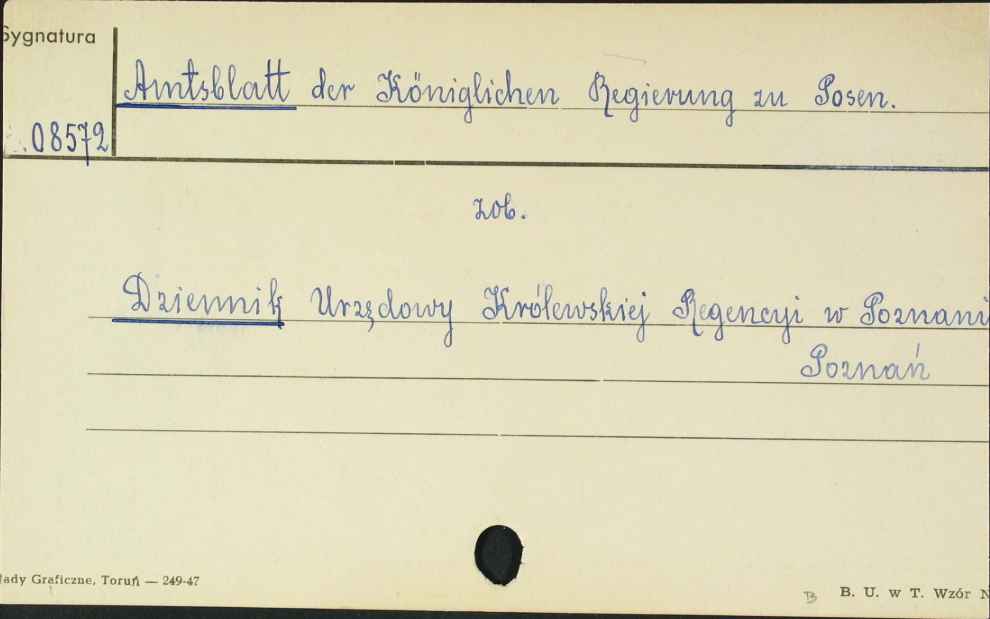 Sygnatura
Amtsblatt der Königlichen Regierung zu Posen.
08572
zob.
Dziennik Urzędowy Królewskiej Regencyi w Poznani
Poznań
łady Graficzne, Toruń — 249-47
B B. U. w T. Wzór N